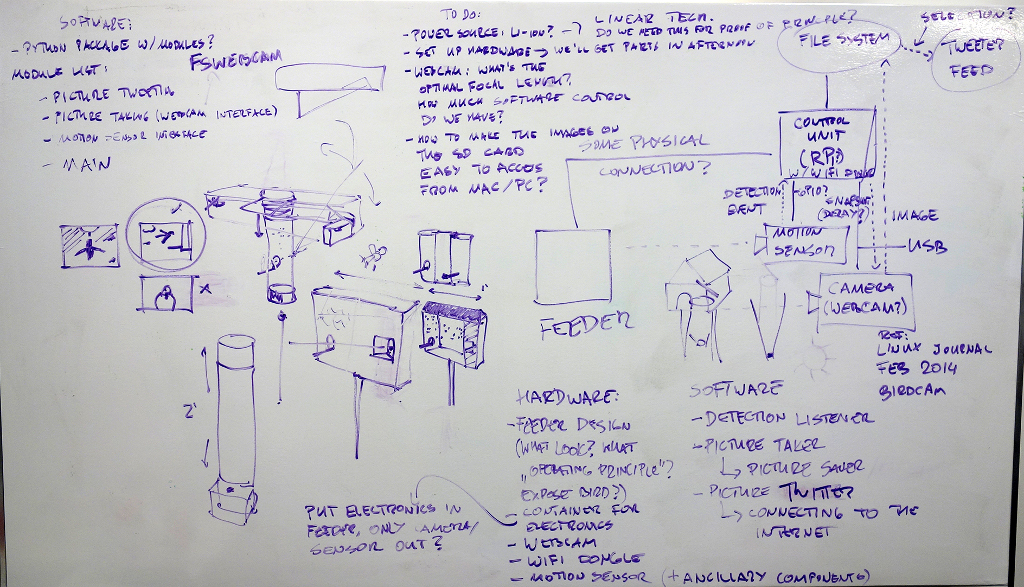 SOFTWARE:
- PYTHON PACKAGE W/MODULES?
FSWEBCAM
MODULE LIST:
- PICTURE TWEETIN
- PICTURE TAKING (WEBCAM INTERFACE)
- MOTION SENSOR INTERFACE
- MAIN
TO DO:
- POWER SOURCE: LI-ION? -
LINEAR TECH.
DO WE NEED THIS FOR PROOF OF PRINCIPLE?
- SET UP HARDWARE → WE'LL GET PARTS IN AFTERNOON
- WEBCAM: WHAT'S THE
OPTIMAL FOCAL LENGTH?
HOW MUCH SOFTWARE CONTROL
DO WE HAVE?
- HOW TO MAKE THE IMAGES ON
THE SD CARD
EASY TO ACCESS
FROM MAC/PC?
SELECTION?
FILE SYSTEM
TWEETER
FEED
CONTROL
UNIT
(RPi?)
W/WIFI DONGLE
SOME PHYSICAL
CONNECTION?
DETECTION
EVENT
GPIO?
SNAPSHOT
(DELAY?)
IMAGE
MOTION
SENSOR
USB
CAMERA
(WEBCAM?)
FEEDER
REF:
LINUX JOURNAL
FEB 2014
BIRDCAM
2'
PUT ELECTRONICS IN
FEEDER, ONLY CAMERA/
SENSOR OUT?
HARDWARE:
- FEEDER DESIGN
(WHAT LOOK? WHAT
"OPERATING PRINCIPLE"?
EXPOSE BIRD?)
- CONTAINER FOR
ELECTRONICS
- WEBCAM
- WIFI DONGLE
- MOTION SENSOR (+ ANCILLARY COMPONENTS)
SOFTWARE
- DETECTION LISTENER
- PICTURE TAKER
↳ PICTURE SAVER
- PICTURE TWITTER
↳ CONNECTING TO THE
INTERNET